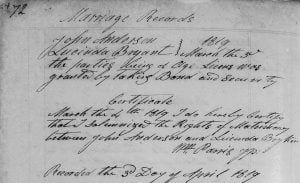 72
Marriage Records
John Anderson } 1819
Lucinda Bryant } March the 3d
the parties being of Age Licens was
granted by taking Bond and Security
Certificate
March the 4th 1819 I do hereby Certify
that I Solemnized the Rights of Matrimony
between John Anderson and Lucinda Bryant
Wm Parris JP
Recorded the 3d Day of April 1819